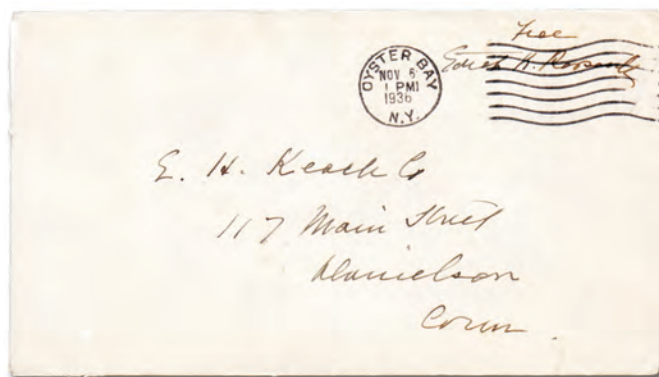 Free
Edith K. Roosevelt
OYSTER BAY
NOV 6
1 PM
1936
N.Y.
E. H. Keach Co
117 Main Street
Danielson
Conn.